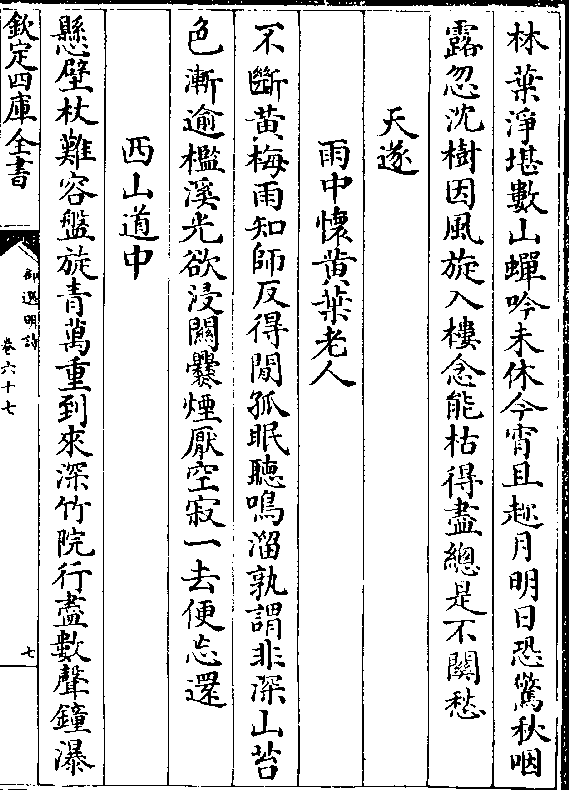 林葉淨堪數山蟬吟未休今宵且趂月明日恐驚秋咽
露忽沈樹因風旋入樓念能枯得盡總是不關愁
天遂
雨中懷黄葉老人
不斷黄梅雨知師反得閒孤眠聽鳴溜孰謂非深山苔
色漸逾檻溪光欲浸關爨煙厭空寂一去便忘還
西山道中
懸壁杖難容盤旋青萬重到來深竹院行盡數聲鐘瀑
欽定四庫全書
御選明詩
卷六十七
七